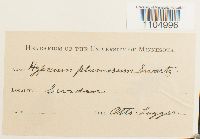 1104996
HERBARIUM OF THE UNIVERSITY OF MINNESOTA
Hypnum plumosum Swartz
Sweden
Otto Lugger